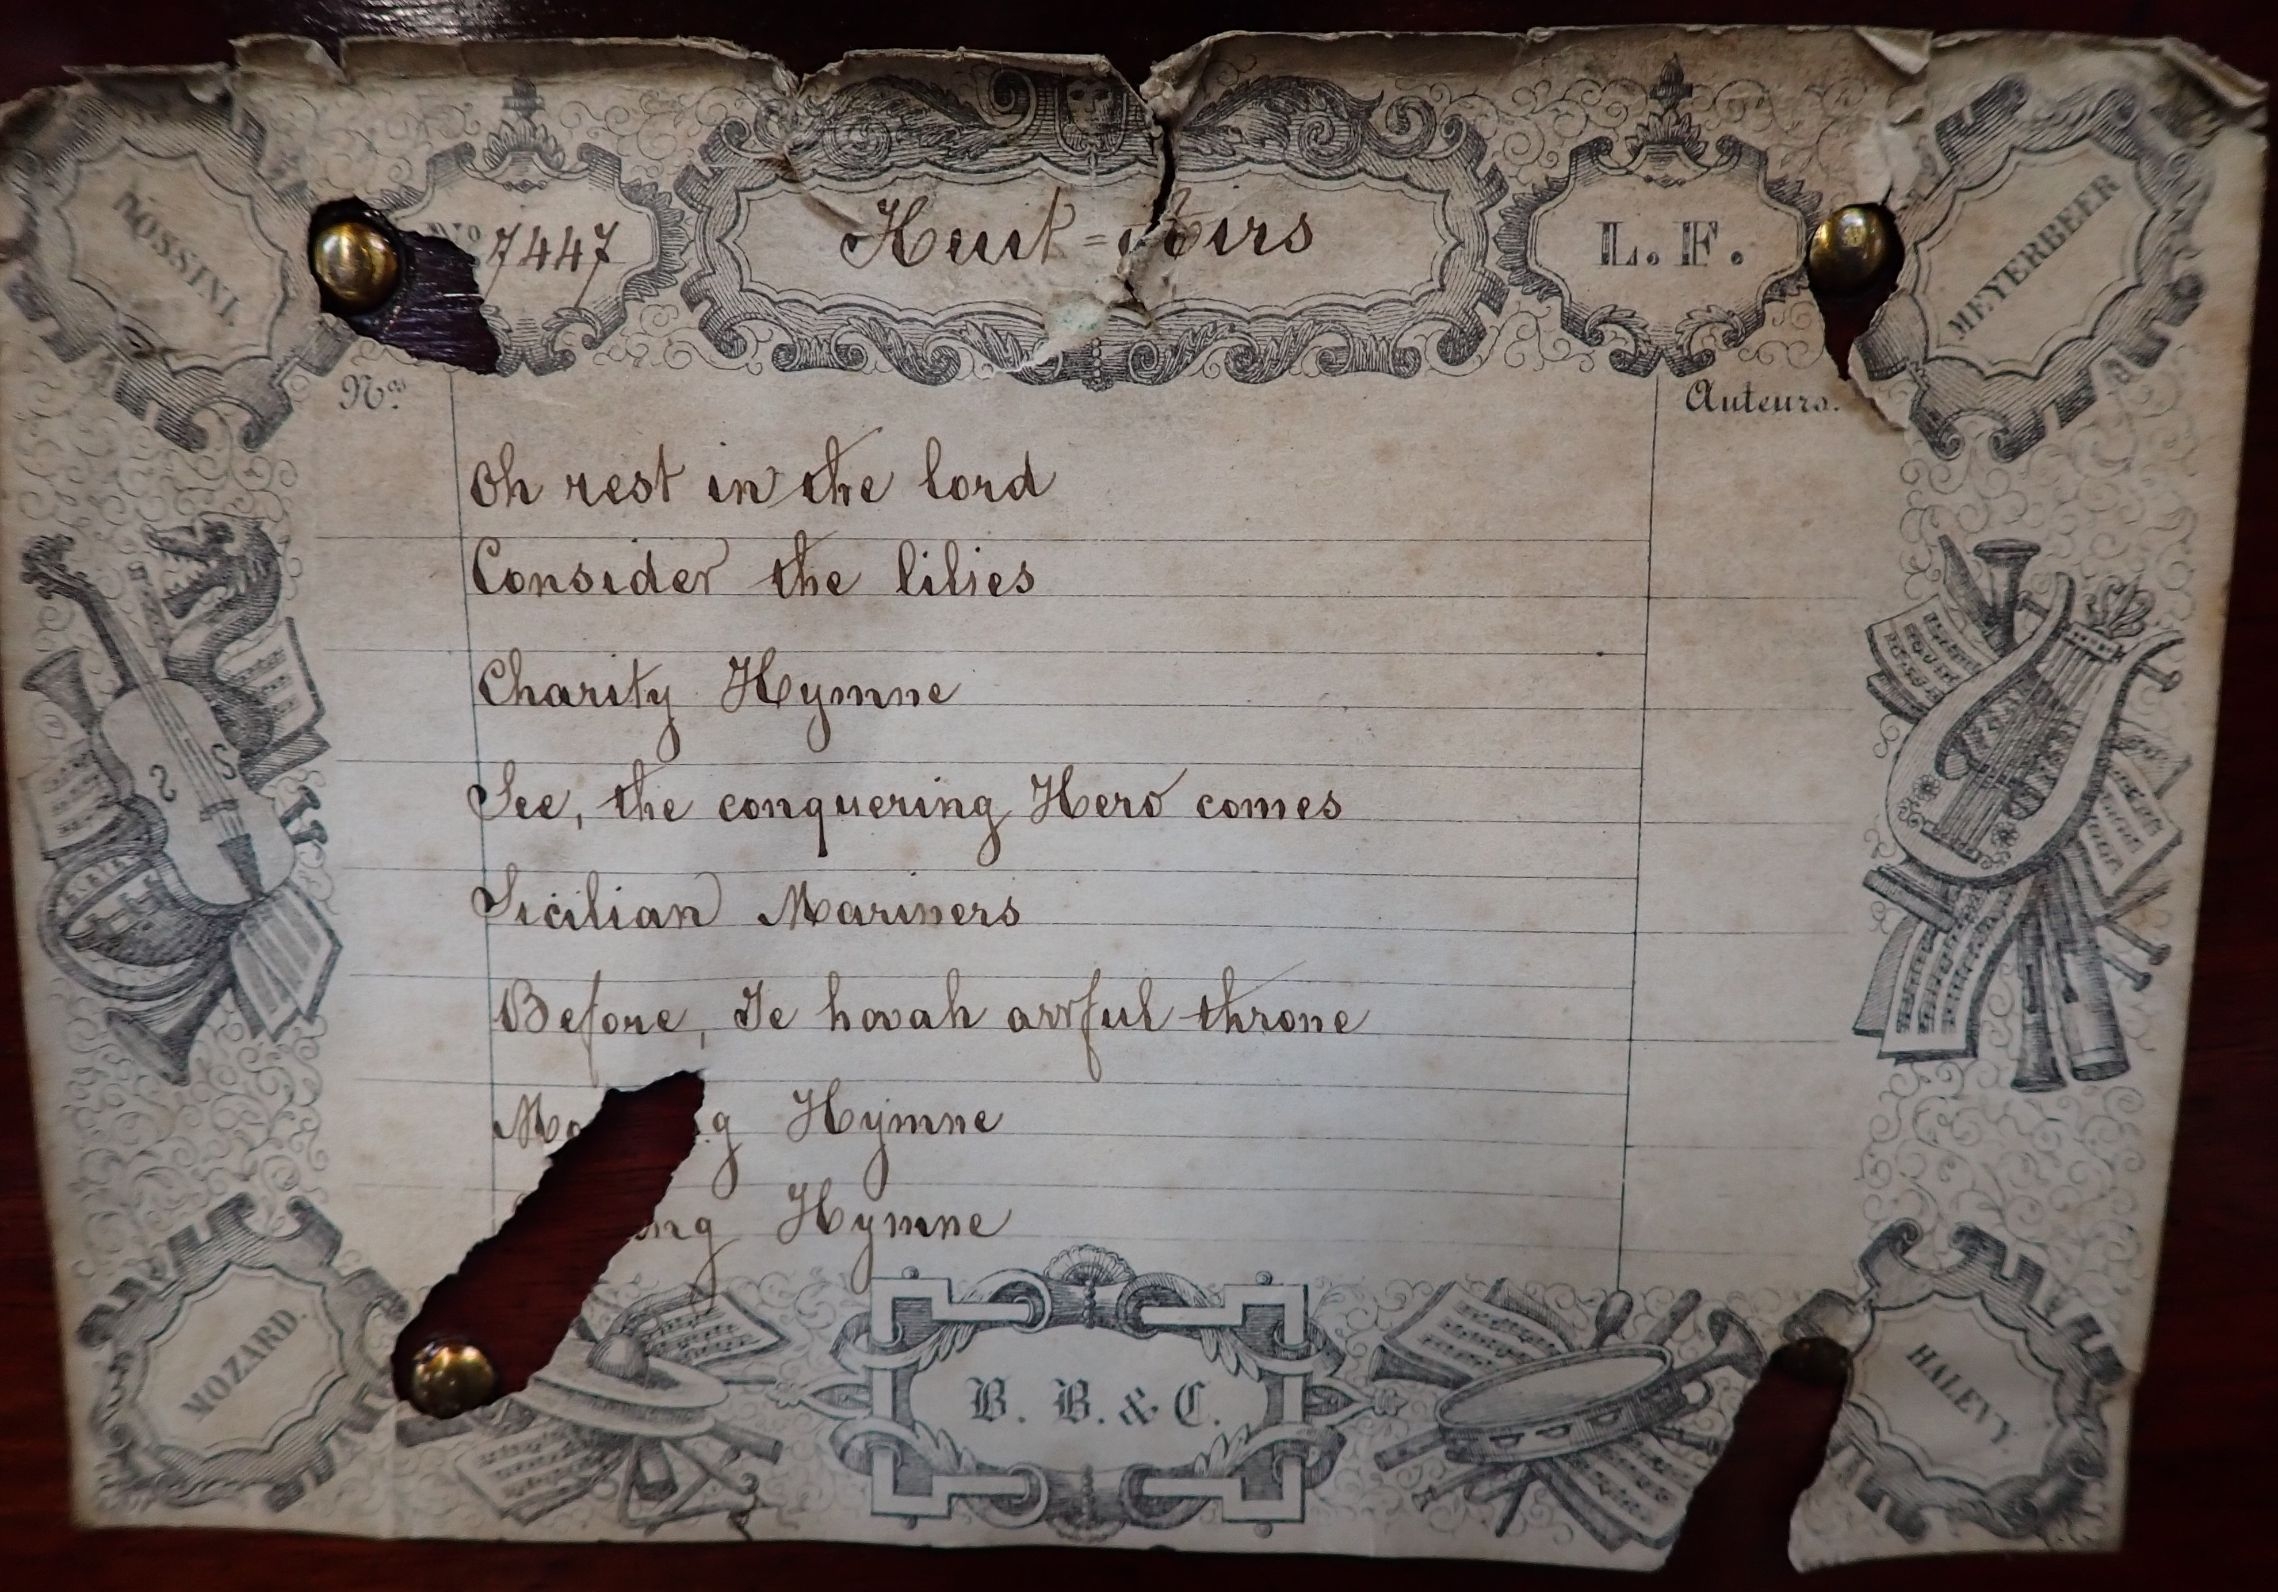 ROSSINI.
No 7447
Huit = Airs
L. F.
MEYERBEER
Nos
Auteurs.
Oh rest in the lord
Consider the lilies
Charity Hymne
See, the conquering Hero comes
Sicilian Mariners
Before, Je hovah awful throne
Mo g Hymne
ng Hymne
MOZARD.
B. B. & C.
HALEVY.